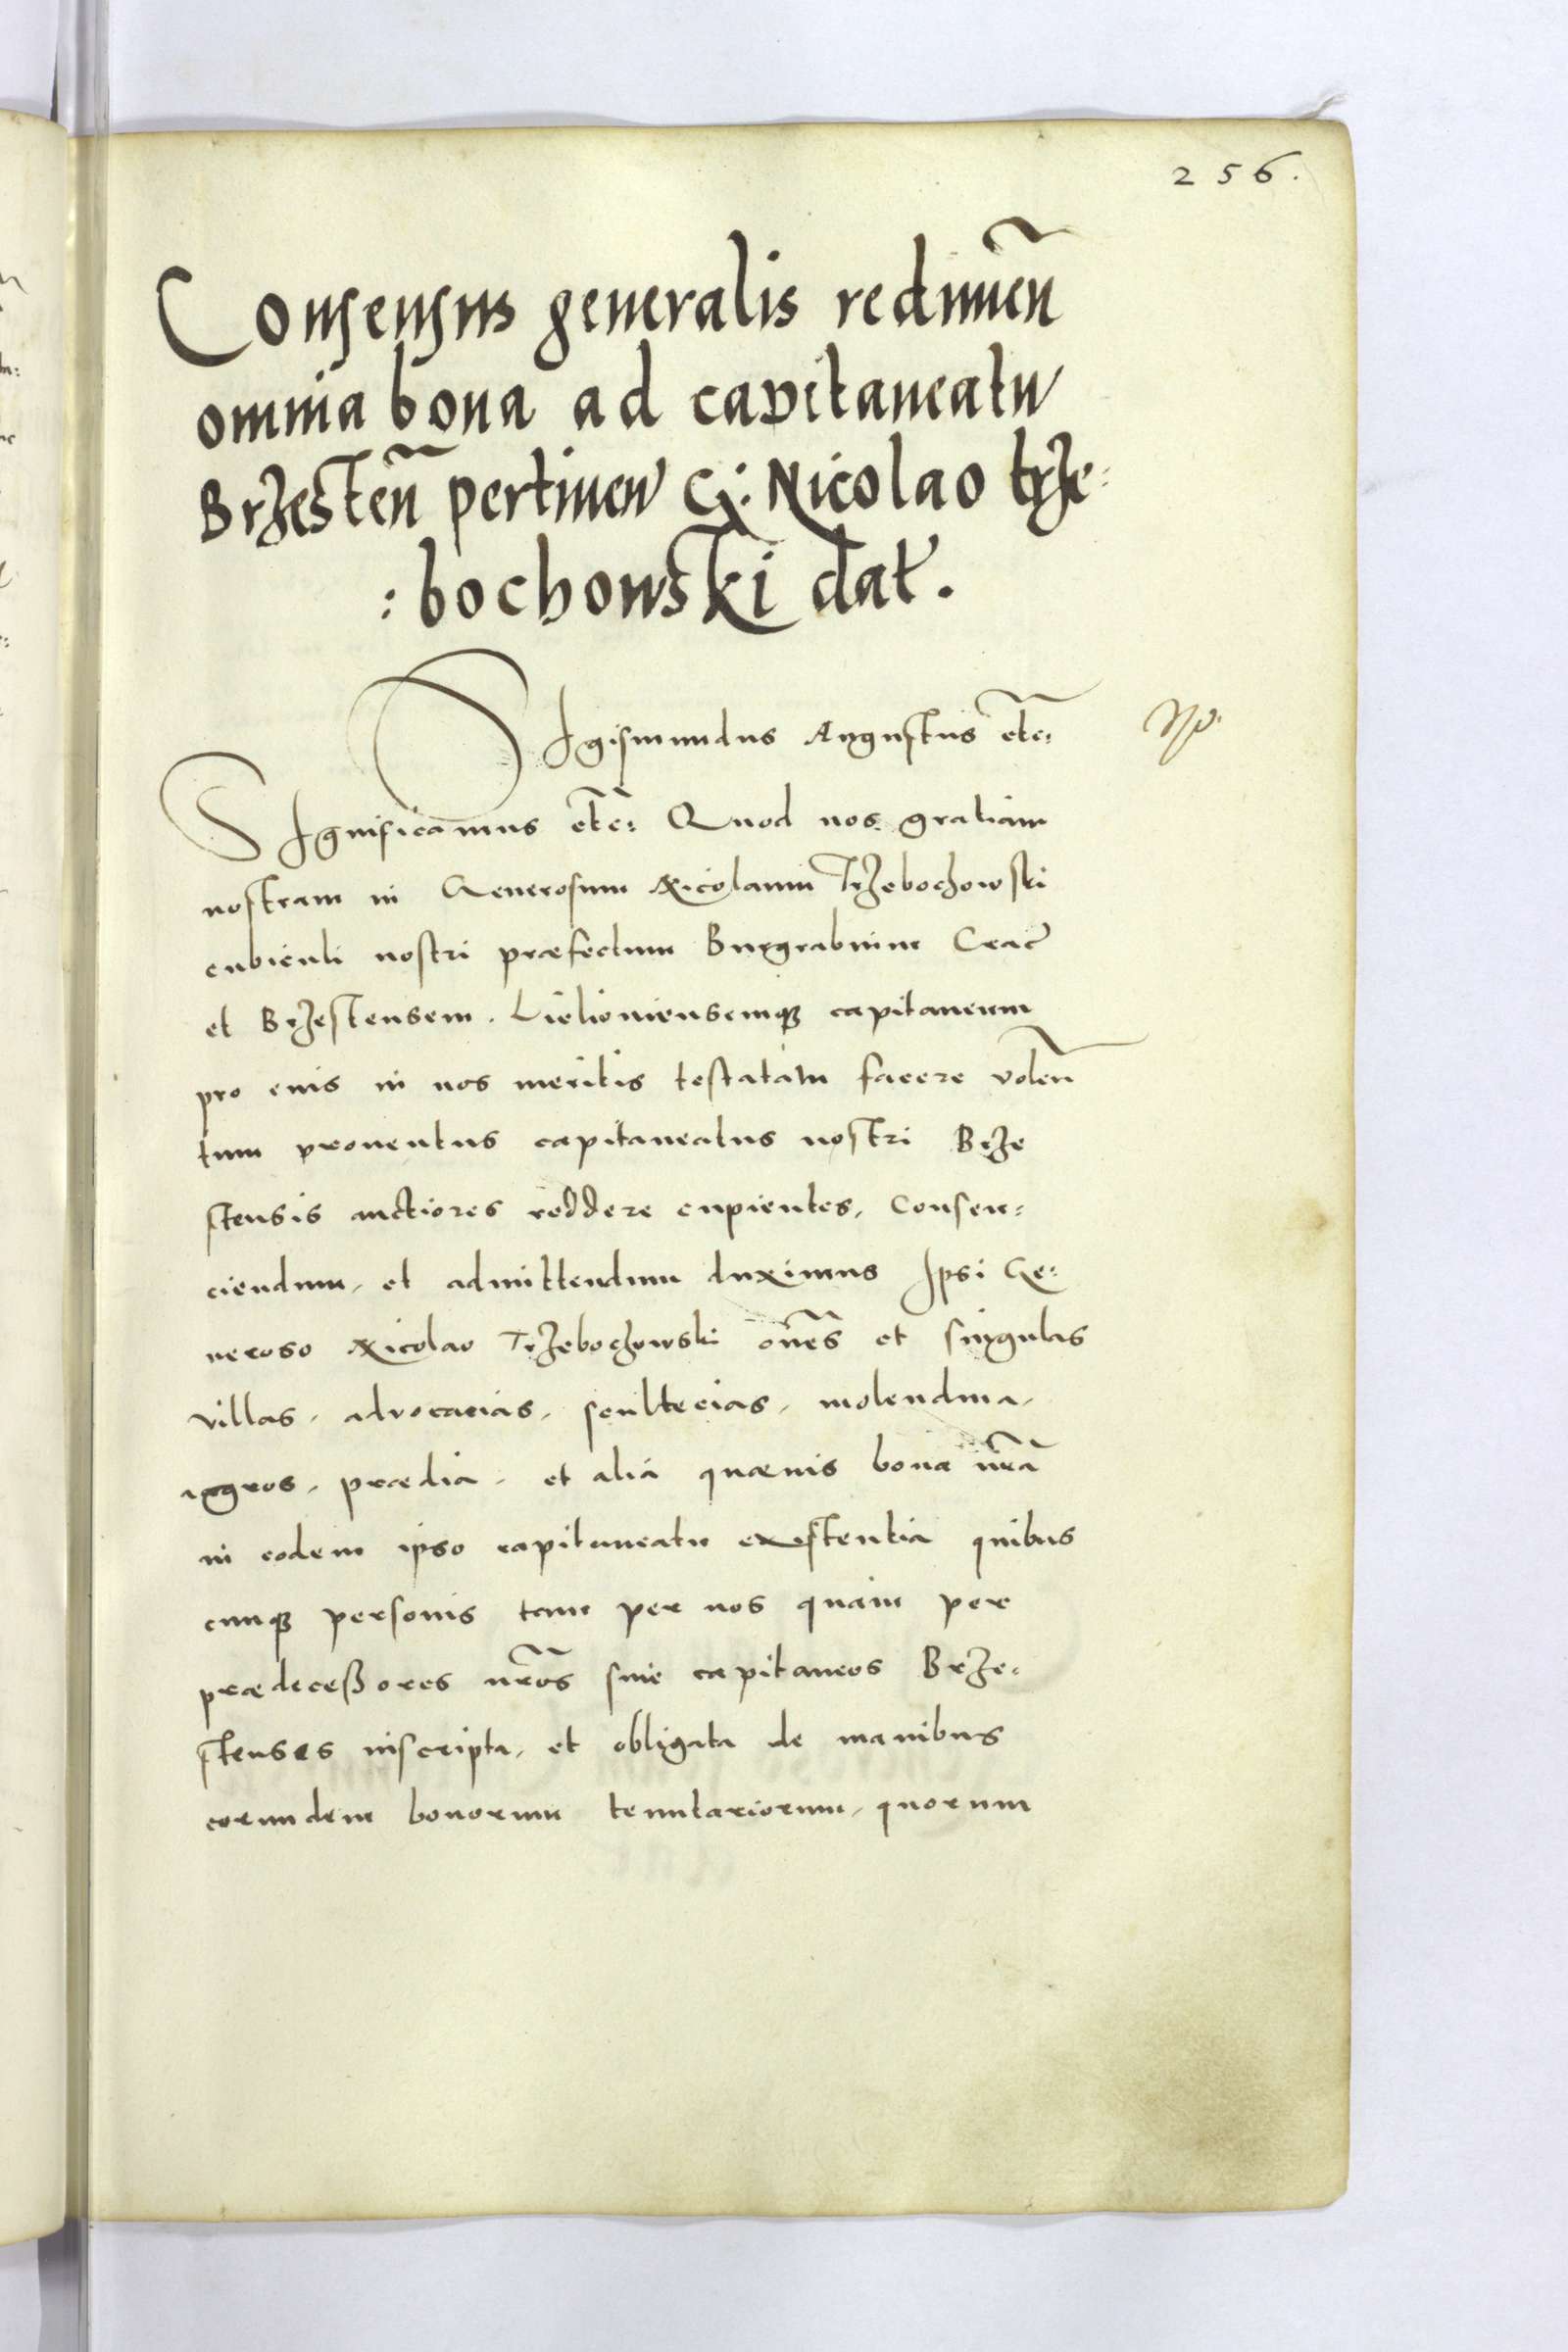 256.
Consensus generalis redimeñ
omnia bona ad capitaneatu
Brzesteñ pertinen G: Nicolao trze:
:bochowski dat.
SIgismundus Augustus etc:
SIgnificamus etc: Quod nos gratiam
nostram in Generosum Nicolaum Trzebochowski
cubiculi nostri præfectum Burgrabium Crac
et Brzestensem. Lielioniensemque capitaneum
pro eius in nos meritis testatam facere voleñ
tum proventus capitaneatus nostri Brze
stensis auctiores reddere cupientes, Consen:
ciendum, et admittendum duximus Ipsi Ge:
neroso Nicolao Trzebochowski oñes et singulas
villas, advocacias, scultecias, molendina,
agros, prædia, et alia quævis bona nr̃a
in eodem ipso capitaneatu existentia quibus
cunque personis tam per nos quam per
prædecessores nr̃os sive capitaneos Brze:
stenses inscripta, et obligata de manibus
eorundem bonorum tenutariorum, quorum